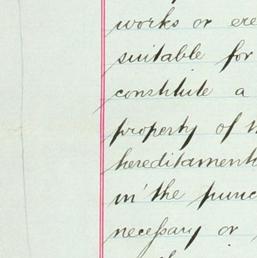 works or ere
suitable for
constitute a
property of
hereditament
in the punc
necessary or